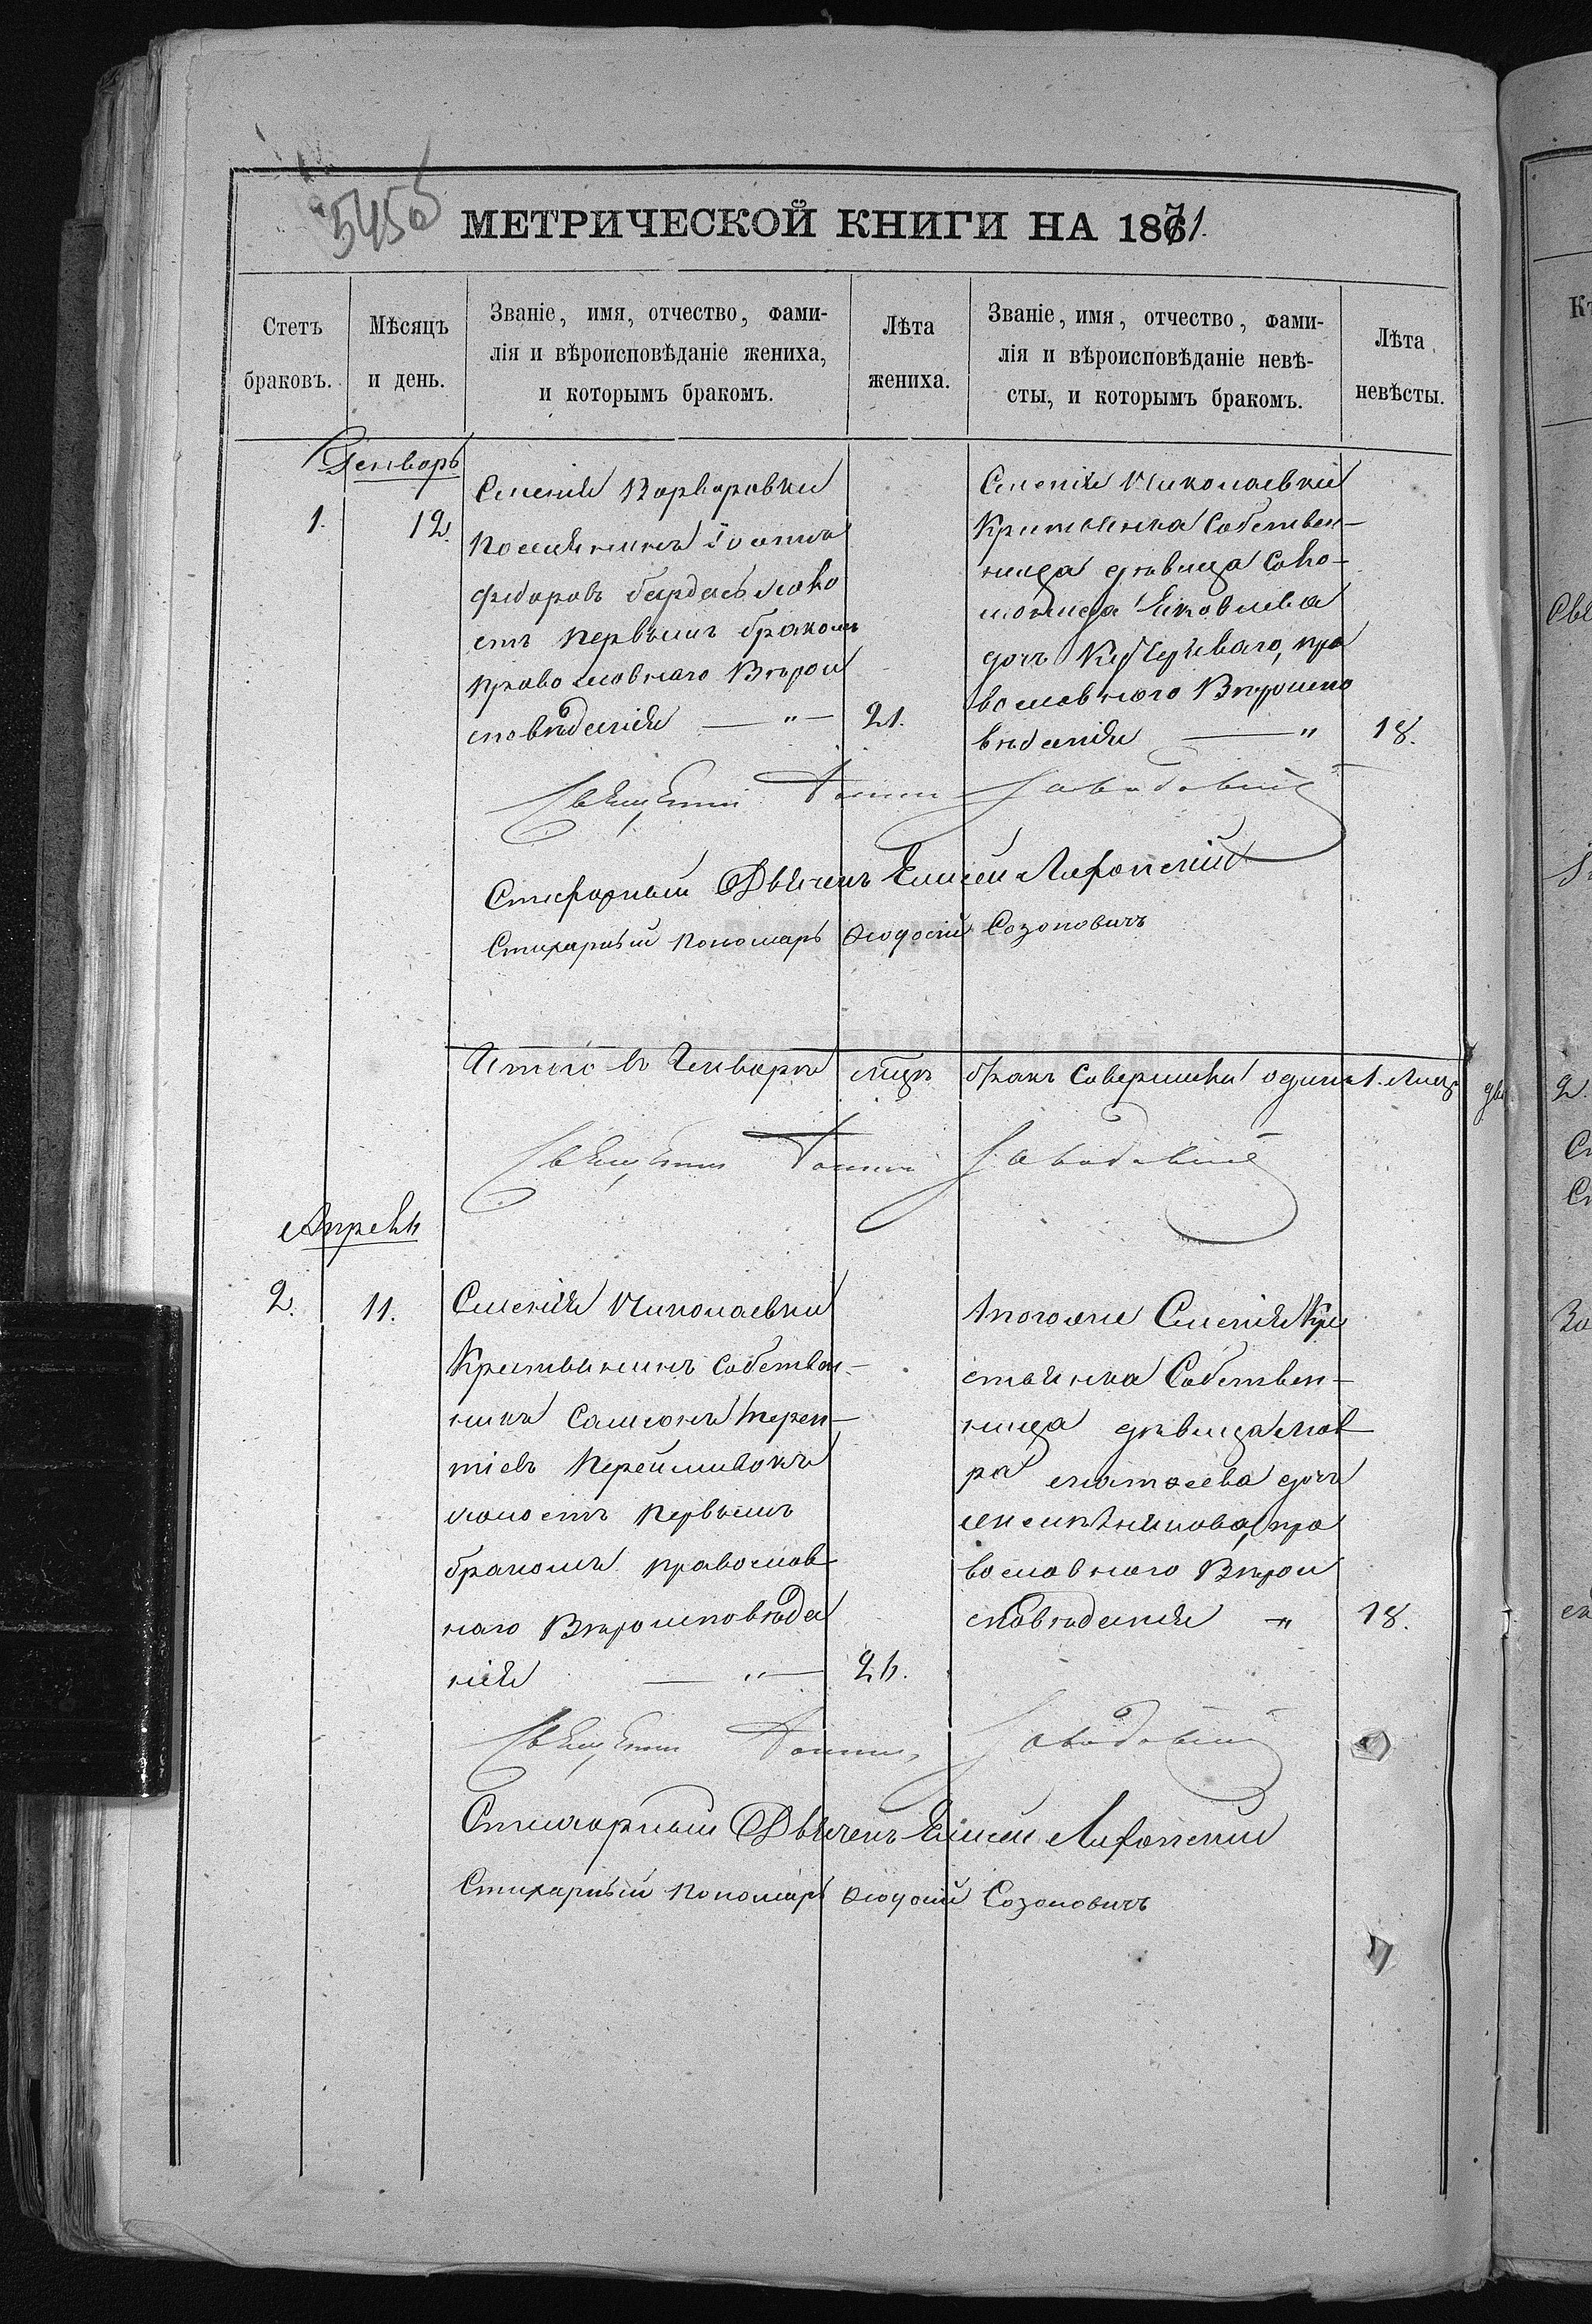 545об
МЕТРИЧЕСКОЙ КНИГИ НА 1871.
Стетъ браковъ.
Мѣсяцъ и день.
Званіе, имя, отчество, фами-
лія и вѣроисповѣданіе жениха,
и которымъ бракомъ.
Лѣта жениха.
Званіе, имя, отчество, фами-
лія и вѣроисповѣданіе невѣ-
сты, и которымъ бракомъ.
Лѣта невѣсты.
Генварь
1.
12.
Селенія Варваровки
Поселянинъ Іоаннъ
Фидоровъ
первымъ бракомъ
православнаго Вѣрои
сповѣданія — „ —
21.
Селенія Николаевки
Крестьянка Собствен-
ница дѣвица Соло-
монида Яковлева
дочь пра
вославного Вѣроиспо
вѣданія — „
18.
Священникъ Іоаннъ Завадовскій
Стихарный Дьячекъ Елисей
Стихарный Пономарь Өеодосій Созоновичъ
Итого въ Генварѣ мѣцѣ бракъ Совершенъ одинъ 1. Лицъ два
Священникъ Іоаннъ Завадовскій
Апрель
2.
11.
Селенія Николаевки
Крестьянинъ Собствен-
никъ Самсонъ Терен-
тіевъ
холостъ Первымъ
бракомъ православ
наго Вѣроисповѣда
нія — „ —
26.
Тогоже Селенія Кре
стьянка Собствен-
ница дѣвица Мав
ра Матѳеева дочь
пра
вославного Вѣрои
сповѣданія „
18.
Священникъ Іоаннъ Завадовскій
Стихарный Дьячекъ Елисей
Стихарный Пономарь Өеодосій Созоновичъ